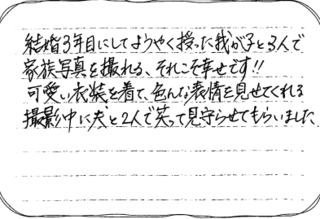 結婚3年目にしてようやく授った我が子と3人で
家族写真を撮れる、それこそ幸せです!!
可愛い衣装を着て、色んな表情を見せてくれる
撮影中に夫と2人で笑って見守らせてもらいました